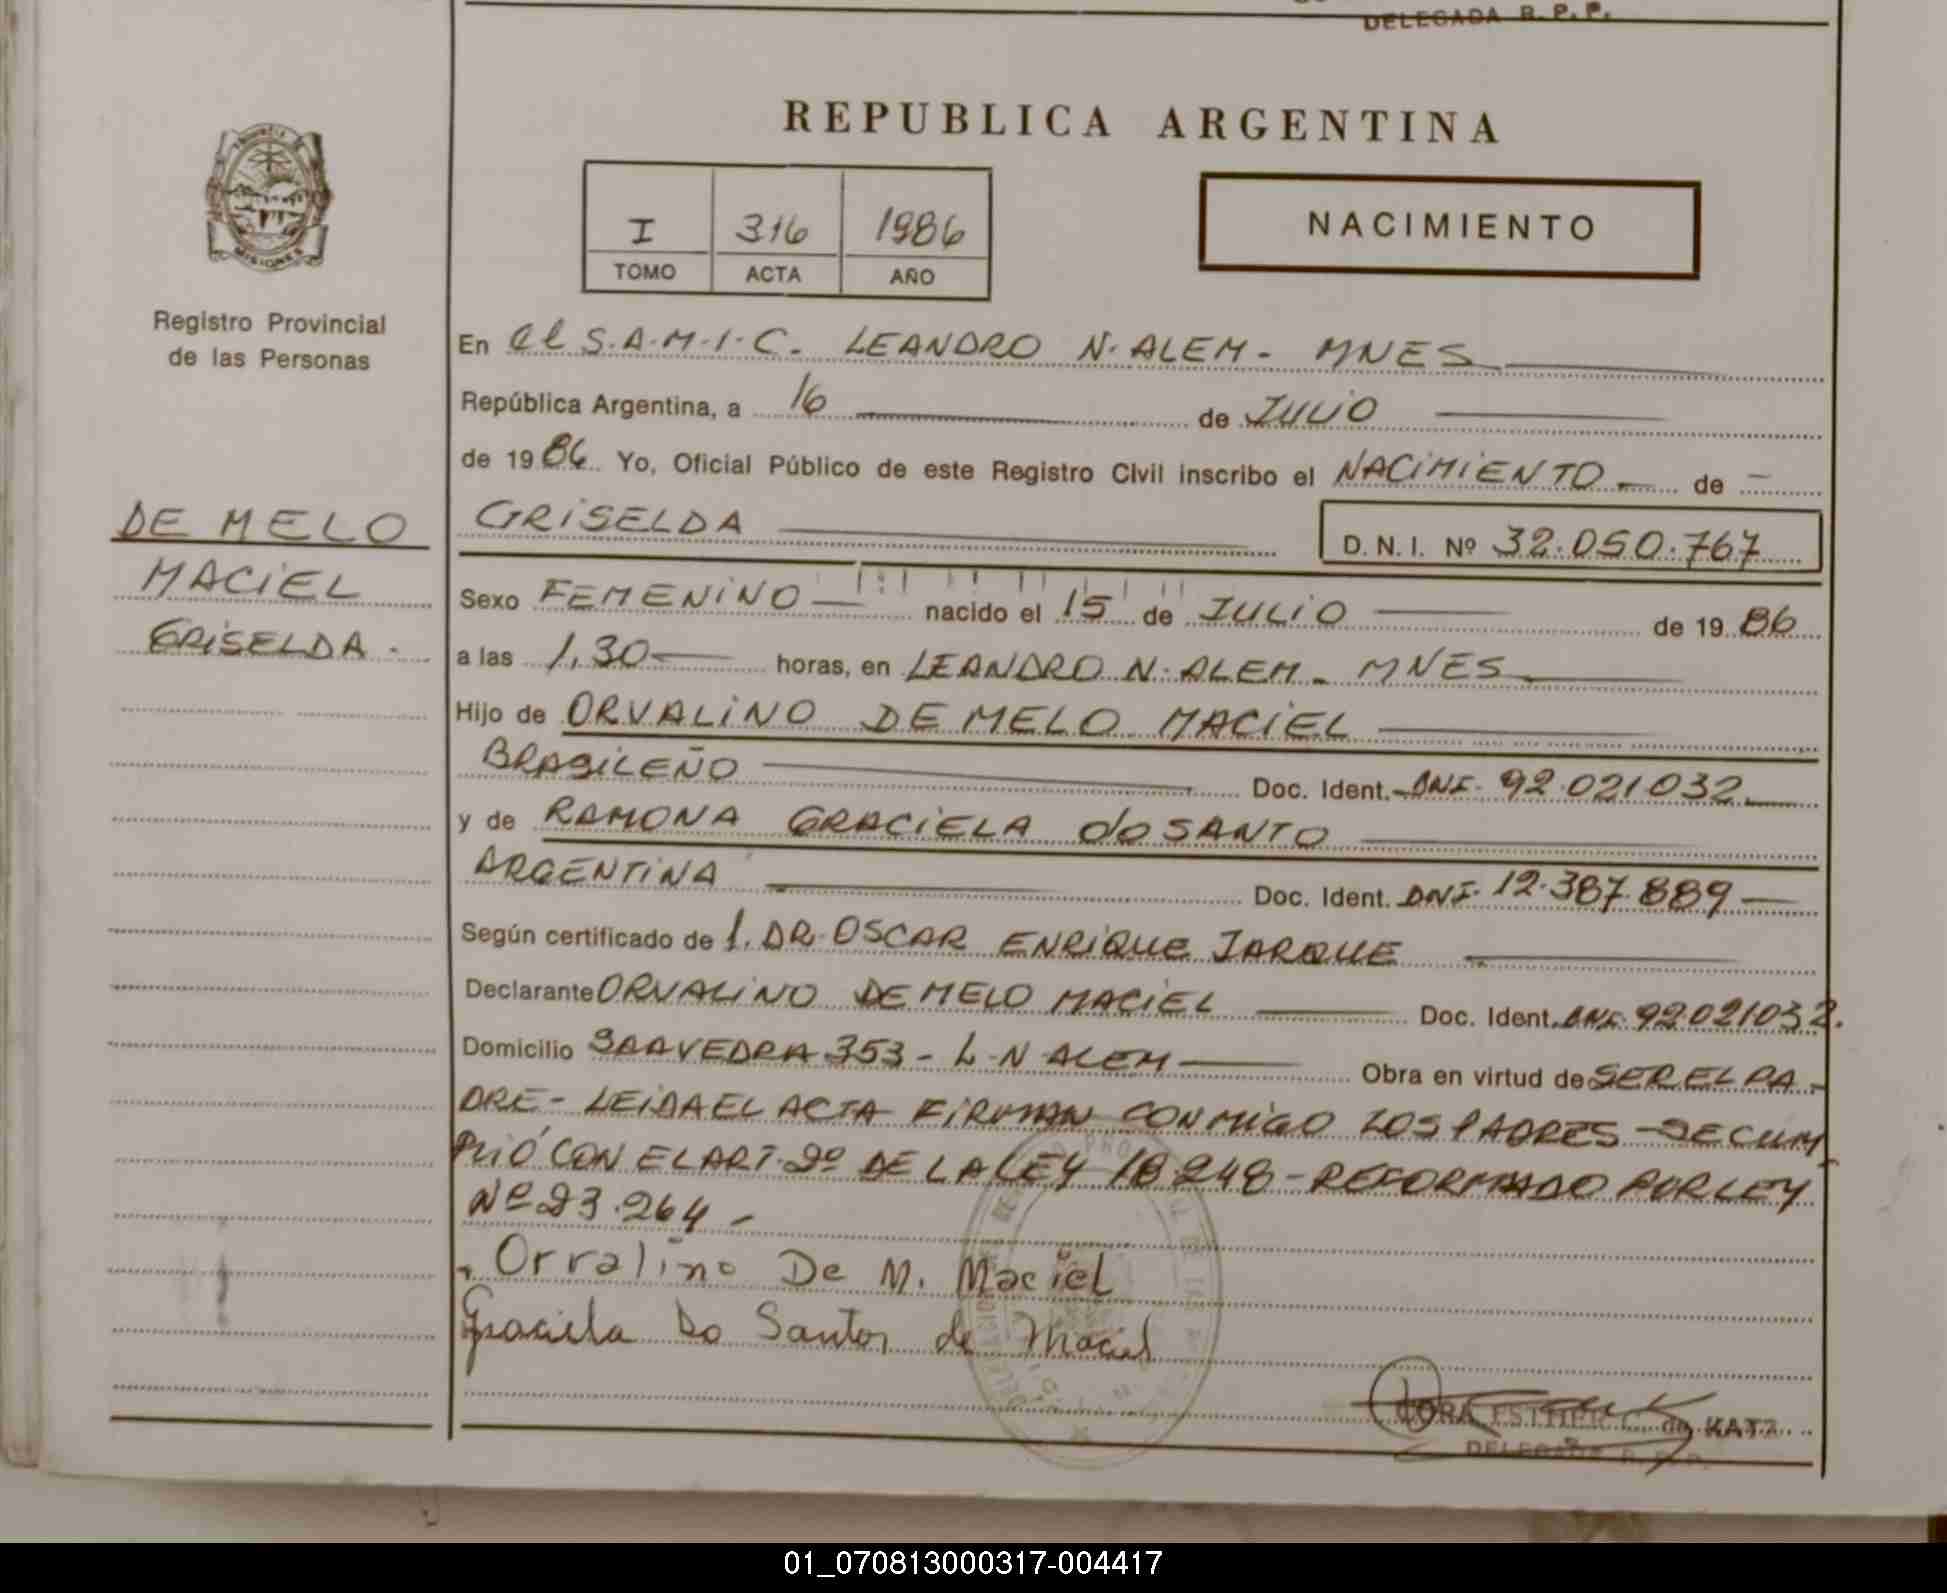 DELEGADA R. P. P.
REPUBLICA ARGENTINA
I 316 1986
TOMO ACTA AÑO
NACIMIENTO
MISIONES
Registro Provincial
de las Personas
DE MELO
MACIEL
GRISELDA.
En el S.A.M.I.C. LEANDRO N. ALEM - MNES
República Argentina, a 16 de JULIO
de 1986. Yo, Oficial Público de este Registro Civil inscribo el NACIMIENTO de
GRISELDA D. N. I. Nº 32.050.767
Sexo FEMENINO nacido el 15 de JULIO de 1986
a las 1,30 horas, en LEANDRO N. ALEM - MNES
Hijo de ORVALINO DE MELO MACIEL
BRASILEÑO Doc. Ident. DNI. 92.021032
y de RAMONA GRACIELA do SANTO
ARGENTINA Doc. Ident. DNI. 12.387.889
Según certificado de l. DR. OSCAR ENRIQUE JARQUE
Declarante ORVALINO DE MELO MACIEL Doc. Ident. DNI. 92021032.
Domicilio SAAVEDRA 353 - L.N ALEM Obra en virtud de SER EL PA-
DRE - LEIDA EL ACTA FIRMAN CONMIGO LOS PADRES - SE CUM
PLIÓ CON EL ART. 2º DE LA LEY 18248 - REFORMADO POR LEY
Nº 23.264 -
Orvalino De M. Maciel
Graciela Do Santos de Maciel
DORA ESTHER C. de KATZ
DELEGADA R. P. P.
01_070813000317-004417